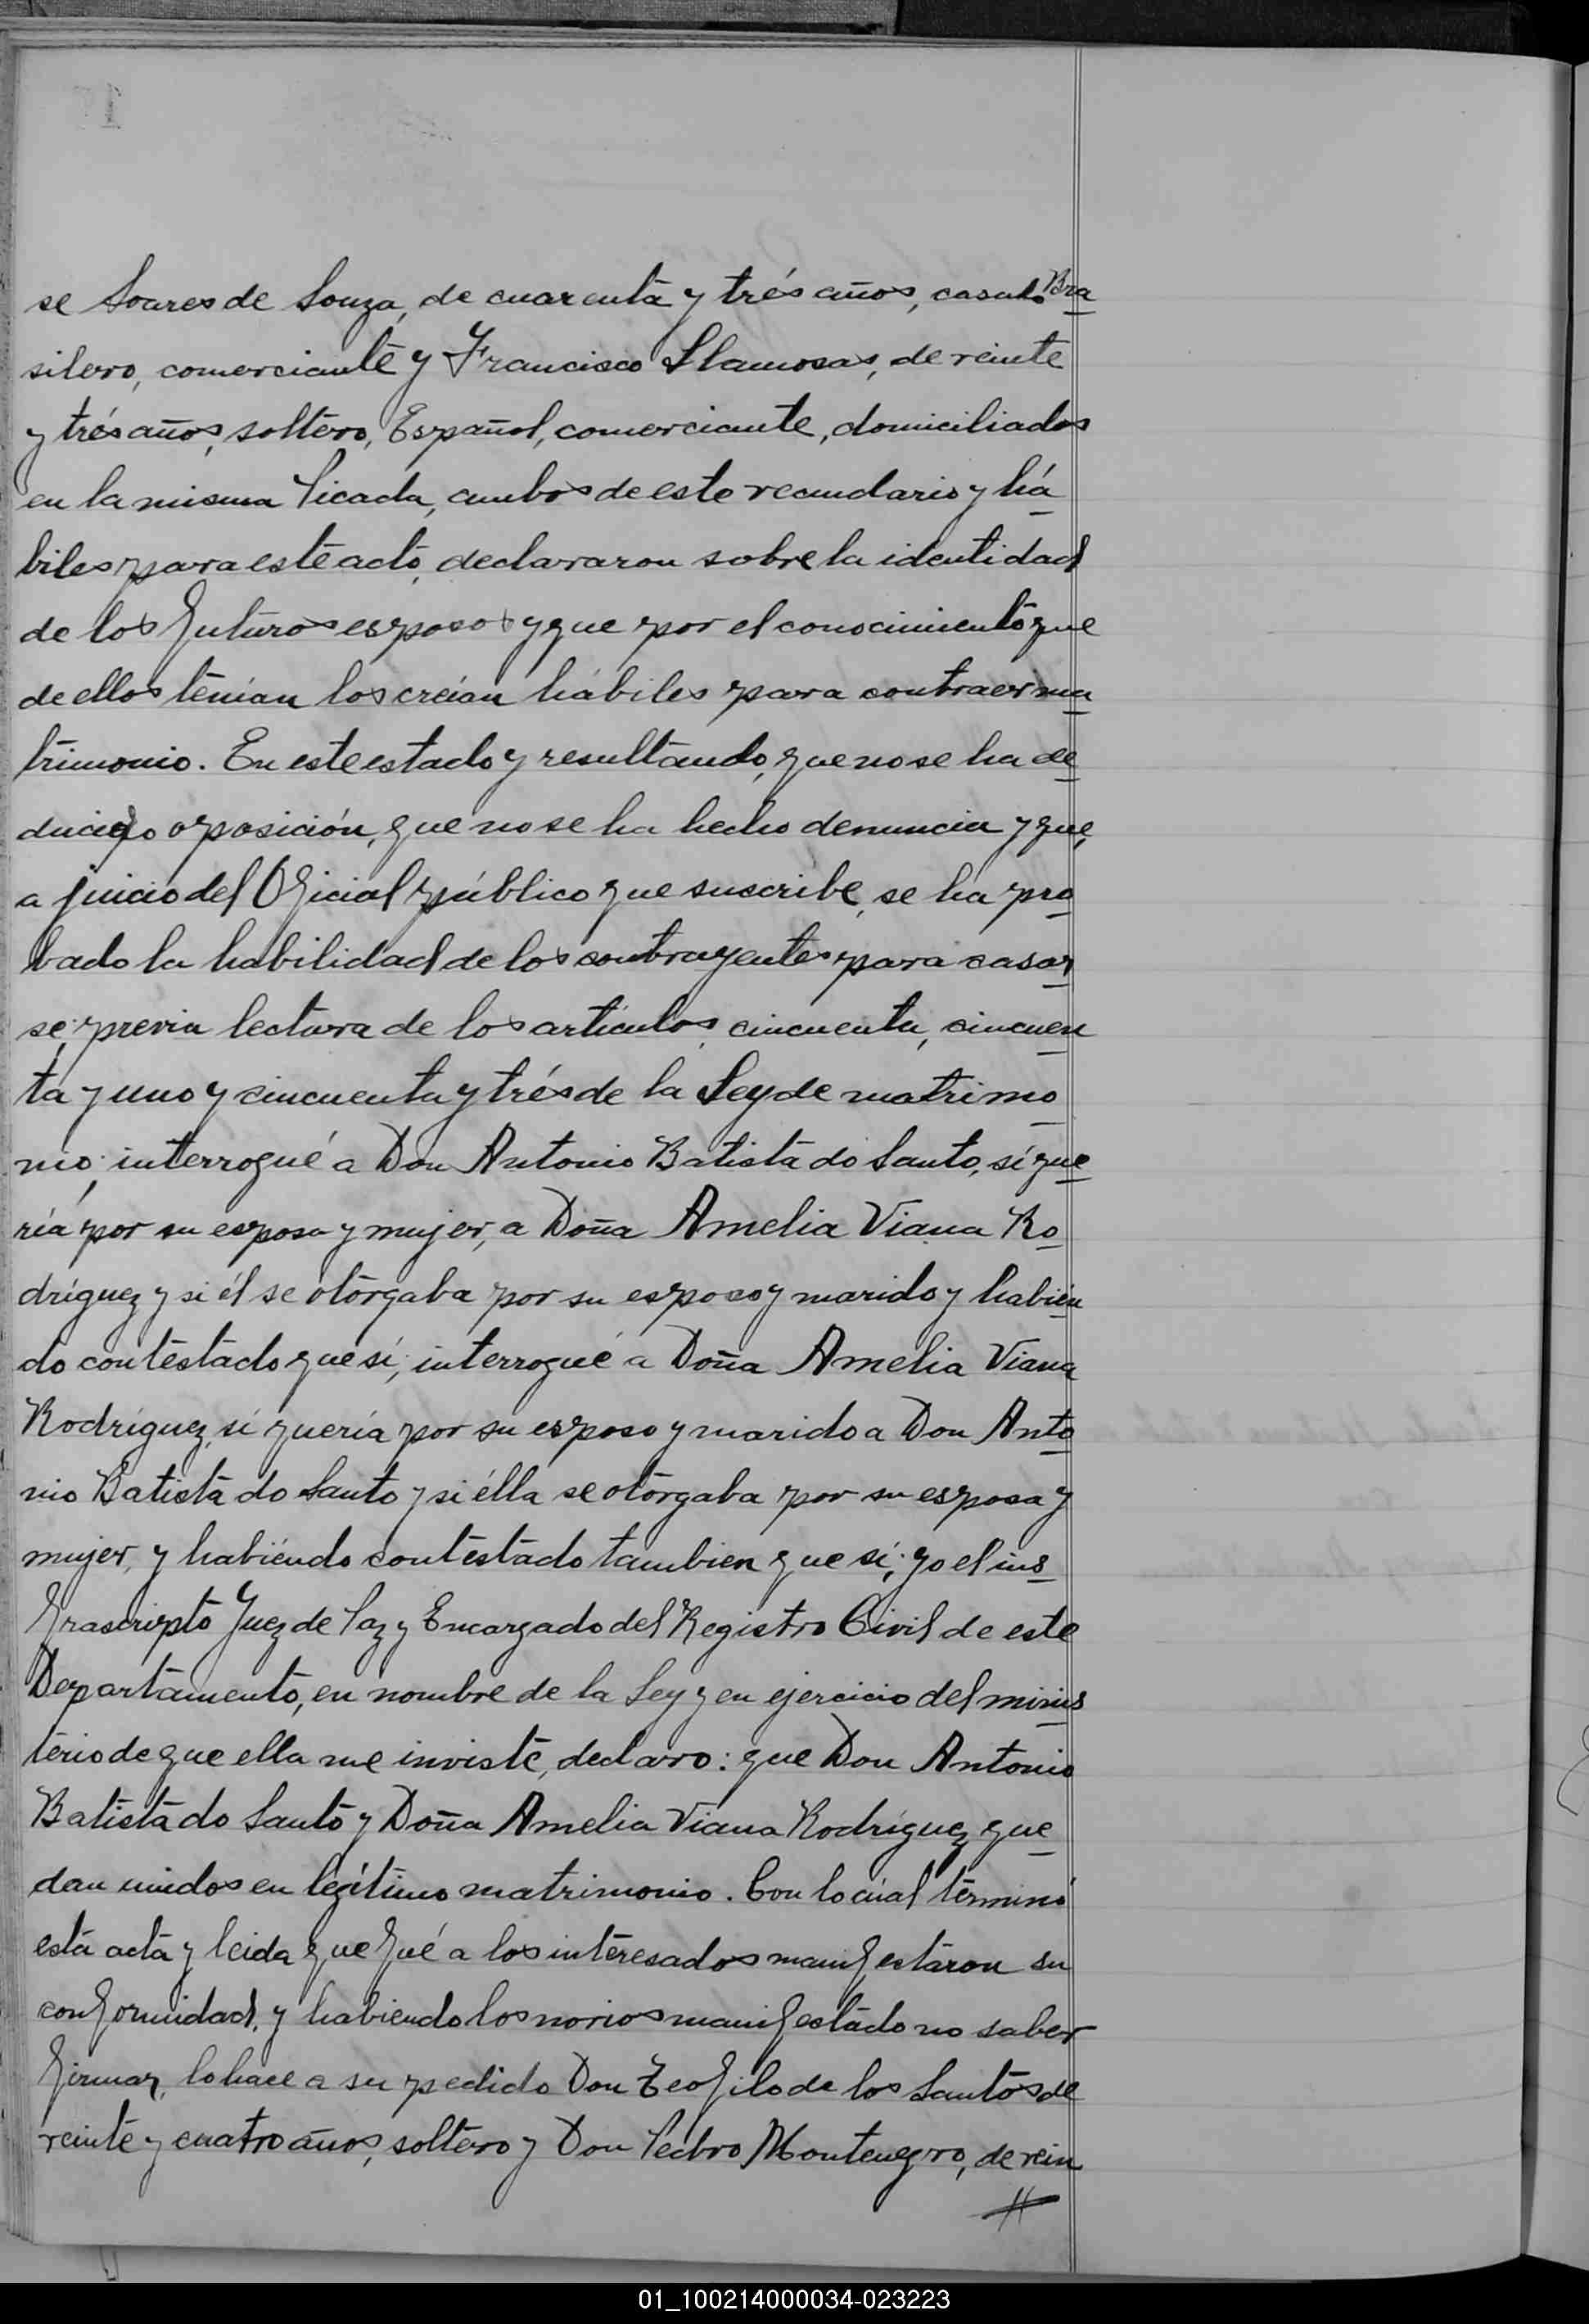 se Soares de Souza, de cuarenta y trés años, casado Bra
silero, comerciante y Francisco Llamosas, de veinte
y trés años, soltero, Español, comerciante, domiciliados
en la misma Picada, ambos de este vecindario y há
biles para este acto, declararon sobre la identidad
de los futuros esposos y que por el conocimiento que
de ellos tenían los creían hábiles para contraer ma
trimonio. En este estado y resultando, que no se ha de
ducido oposición, que no se ha hecho denuncia y que,
a juicio del Oficial público que suscribe, se ha pro
bado la habilidad de los contrayentes para casar
se; previa lectura de los artículos, cincuenta, cincuen
ta y uno y cincuenta y trés de la Ley de matrimo
nio; interrogué a Don Antonio Batista do Santo, sí que
ría por su esposa y mujer, a Doña Amelia Viana Ro
dríguez y si él se otorgaba por su esposo y marido y habién
do contestado que sí; interrogué a Doña Amelia Viana
Rodríguez, si quería por su esposo y marido a Don Anto
nio Batista do Santo y si élla se otorgaba por su esposa y
mujer, y habiéndo contestado tambien que sí; yo el ins
frascripto Juez de Paz y Encargado del Registro Civil de este
Departamento, en nombre de la Ley y en ejercicio del minis
terio de que ella me inviste, declaro: que Don Antonio
Batista do Santo y Doña Amelia Viana Rodríguez que
dan unidos en legítimo matrimonio. Con lo cúal términó
está acta y leida que fué a los interesados manifestaron su
conformidad, y habiendo los novios manifestado no saber
firmar, lo hace a su pedido Don Teofilo de los Santos de
veinte y cuatro años, soltero y Don Pedro Montenegro, de vein
01_100214000034-023223